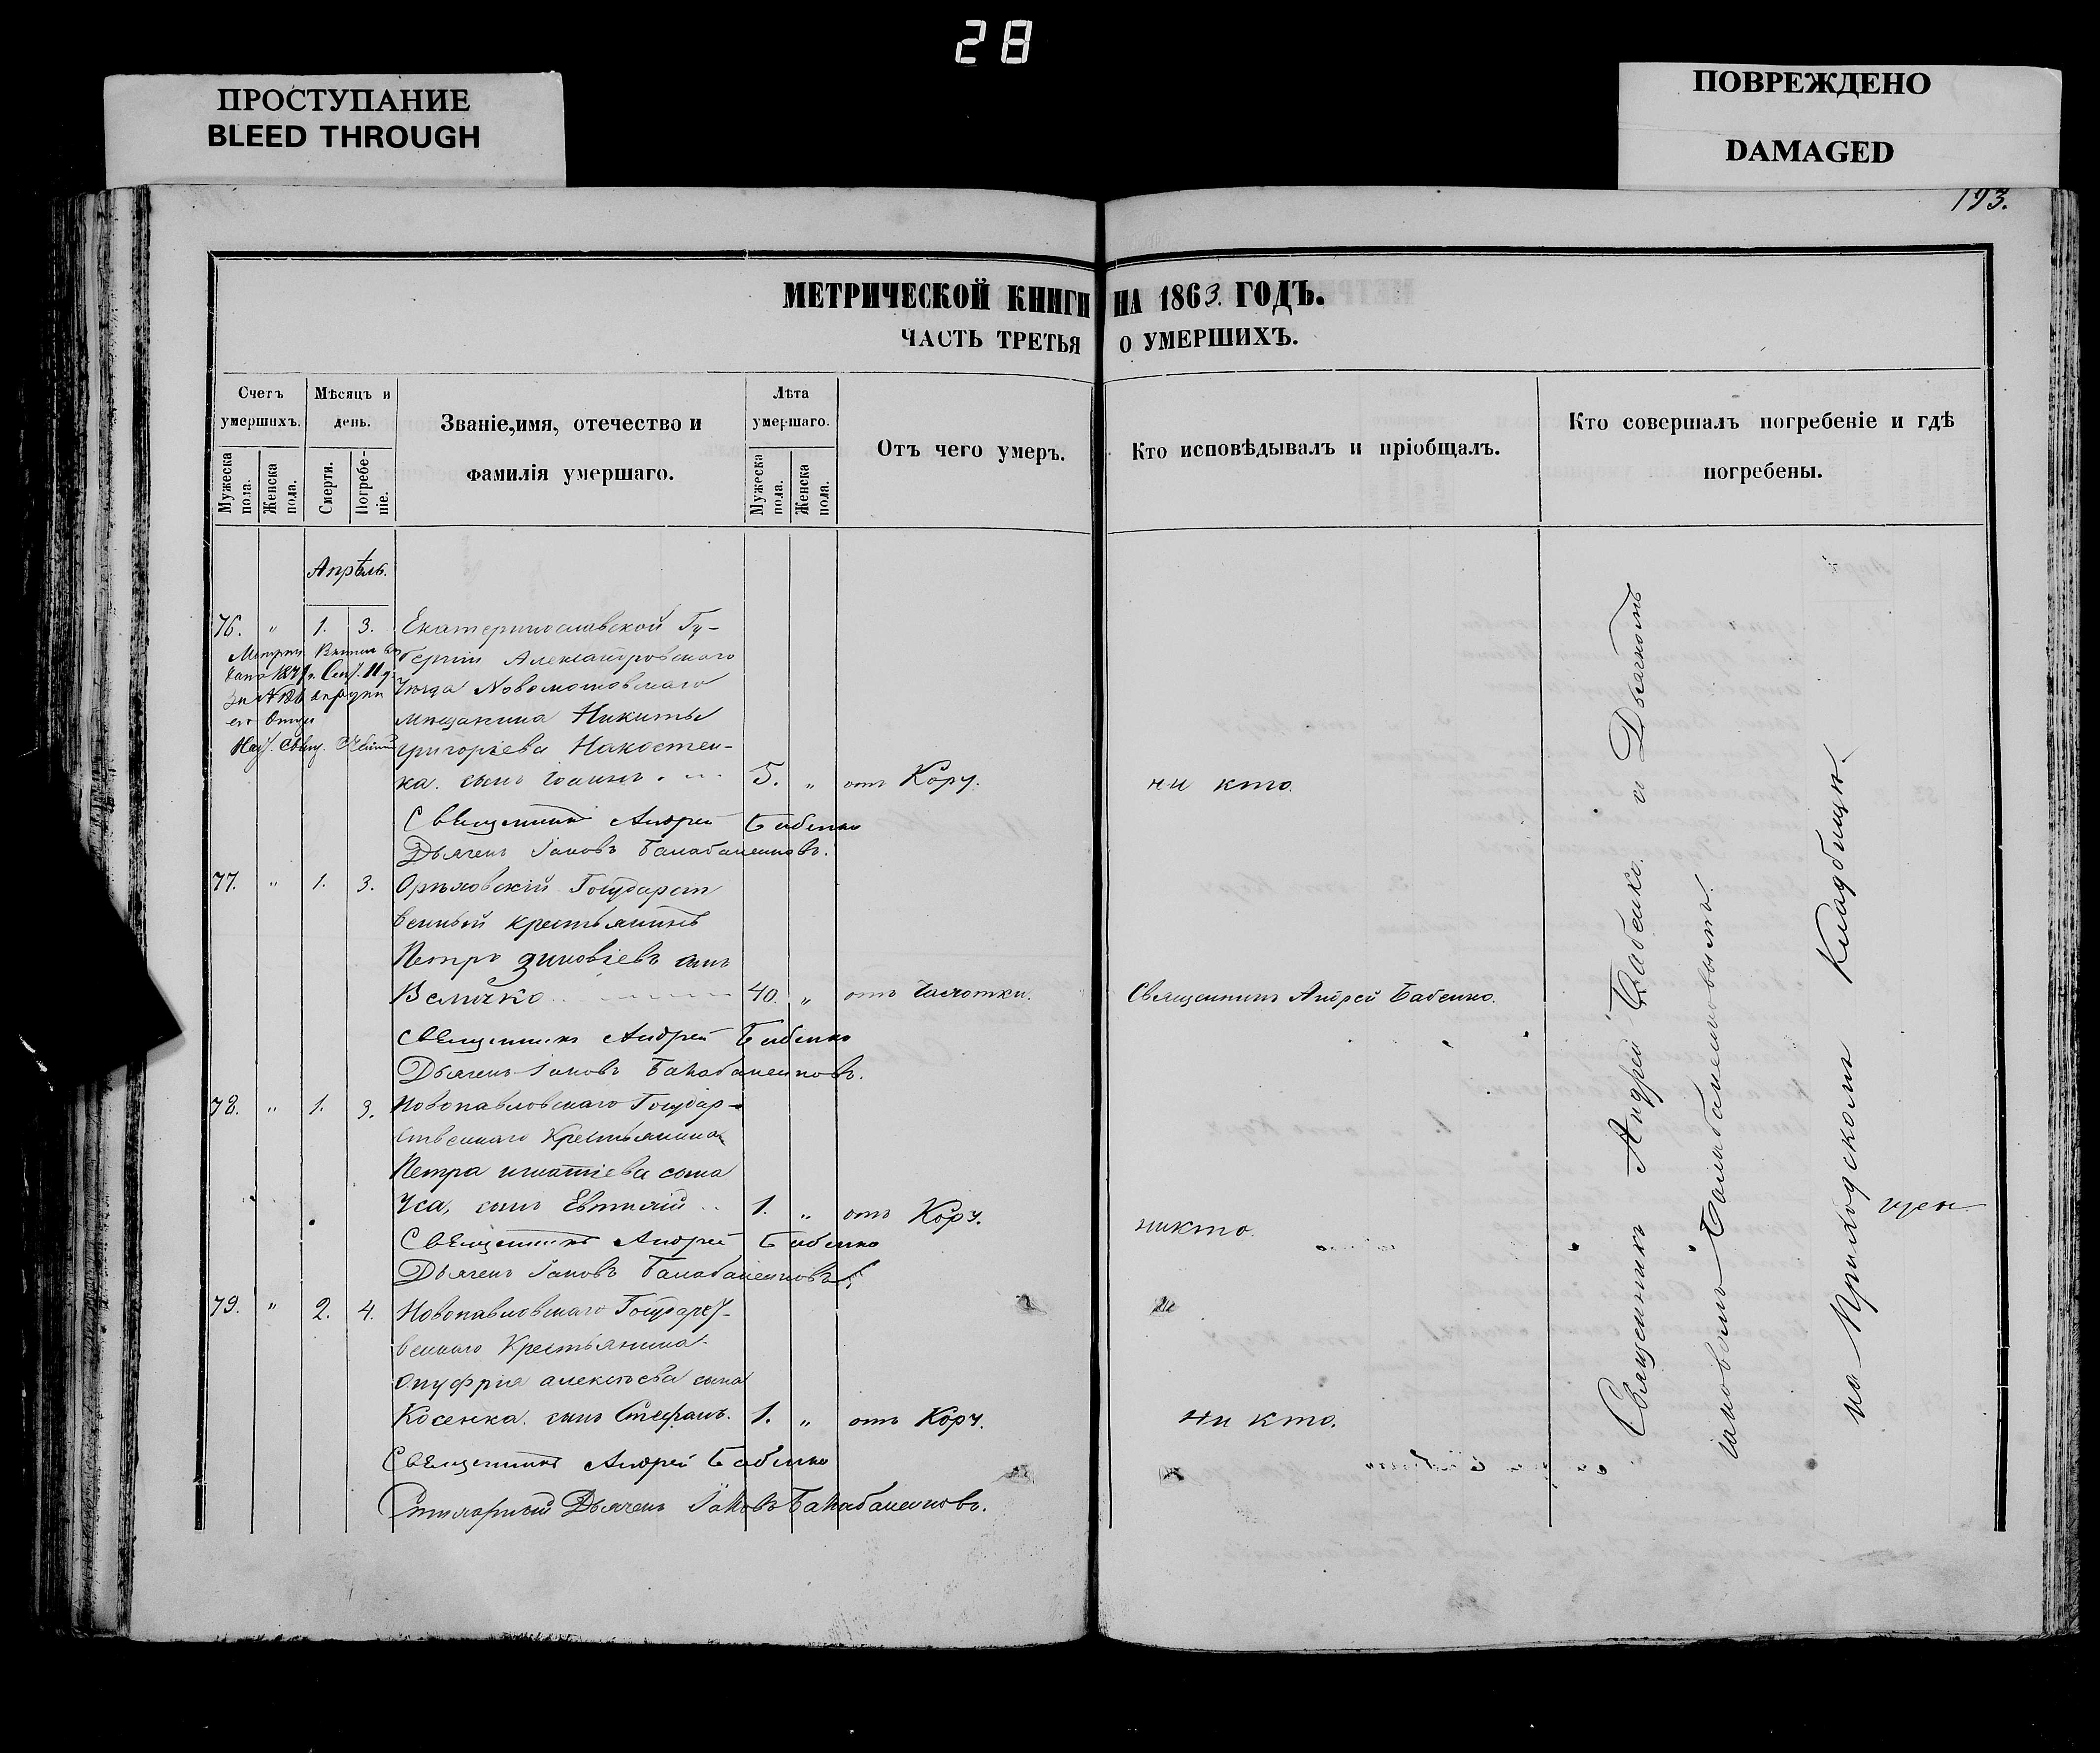 28
ПРОСТУПАНИЕ
BLEED THROUGH
ПОВРЕЖДЕНО
DAMAGED
193.
МЕТРИЧЕСКОЙ КНИГИ НА 1863. ГОДЪ.
ЧАСТЬ ТРЕТЬЯ О УМЕРШИХЪ.
Счетъ умершихъ.
Мужеска пола.
Женска пола.
Мѣсяцъ и день.
Смерти.
Погребеніе.
Званіе, имя, отечество и
фамилія умершаго.
Лѣта умершаго.
Мужеска пола.
Женска пола.
Отъ чего умеръ.
Кто исповѣдывалъ и пріобщалъ.
Кто совершалъ погребеніе и гдѣ
погребены.
Апрѣль.
76. " 1. 3. Екатеринославской Гу-
берніи Александровскаго
Уезда Новомосковскаго
мещанина Никиты
григоріева Накостен-
ка. сынъ Іоаннъ. 5. " отъ Кору. ни кто.
Священникъ Андрей Бабенко
Дьячекъ Іаковъ Балабаненковъ.
77. " 1. 3. Орѣховскій Государст
венный крестьянинъ
Петръ зиновіевъ сынъ
Величко 40. " отъ Чахотки. Священникъ Андрей Бабенко.
Священникъ Андрей Бабенко
Дьячекъ Іаковъ Балабаненковъ.
78. " 1. 3. Новопавловскаго Государ-
ственнаго Крестьянина
Петра игнатіева сына
Уса, сынъ Евтихій 1. " отъ Кору. никто.
Священникъ Андрей Бабенко
Дьячекъ Іаковъ Балабаненковъ
79. " 2. 4. Новопавловскаго Государст-
веннаго Крестьянина
Онуфрия алексѣева сына
Косенка. сынъ Стефанъ. 1. " отъ Кору. ни кто.
Священникъ Андрей Бабенко
Дьячекъ Іаковъ Балабаненковъ.
Священникъ Андрей Бабенко. и Дьячкомъ
Іаковомъ Балабаненковымъ.
на Приходскомъ Кладбищѣ.